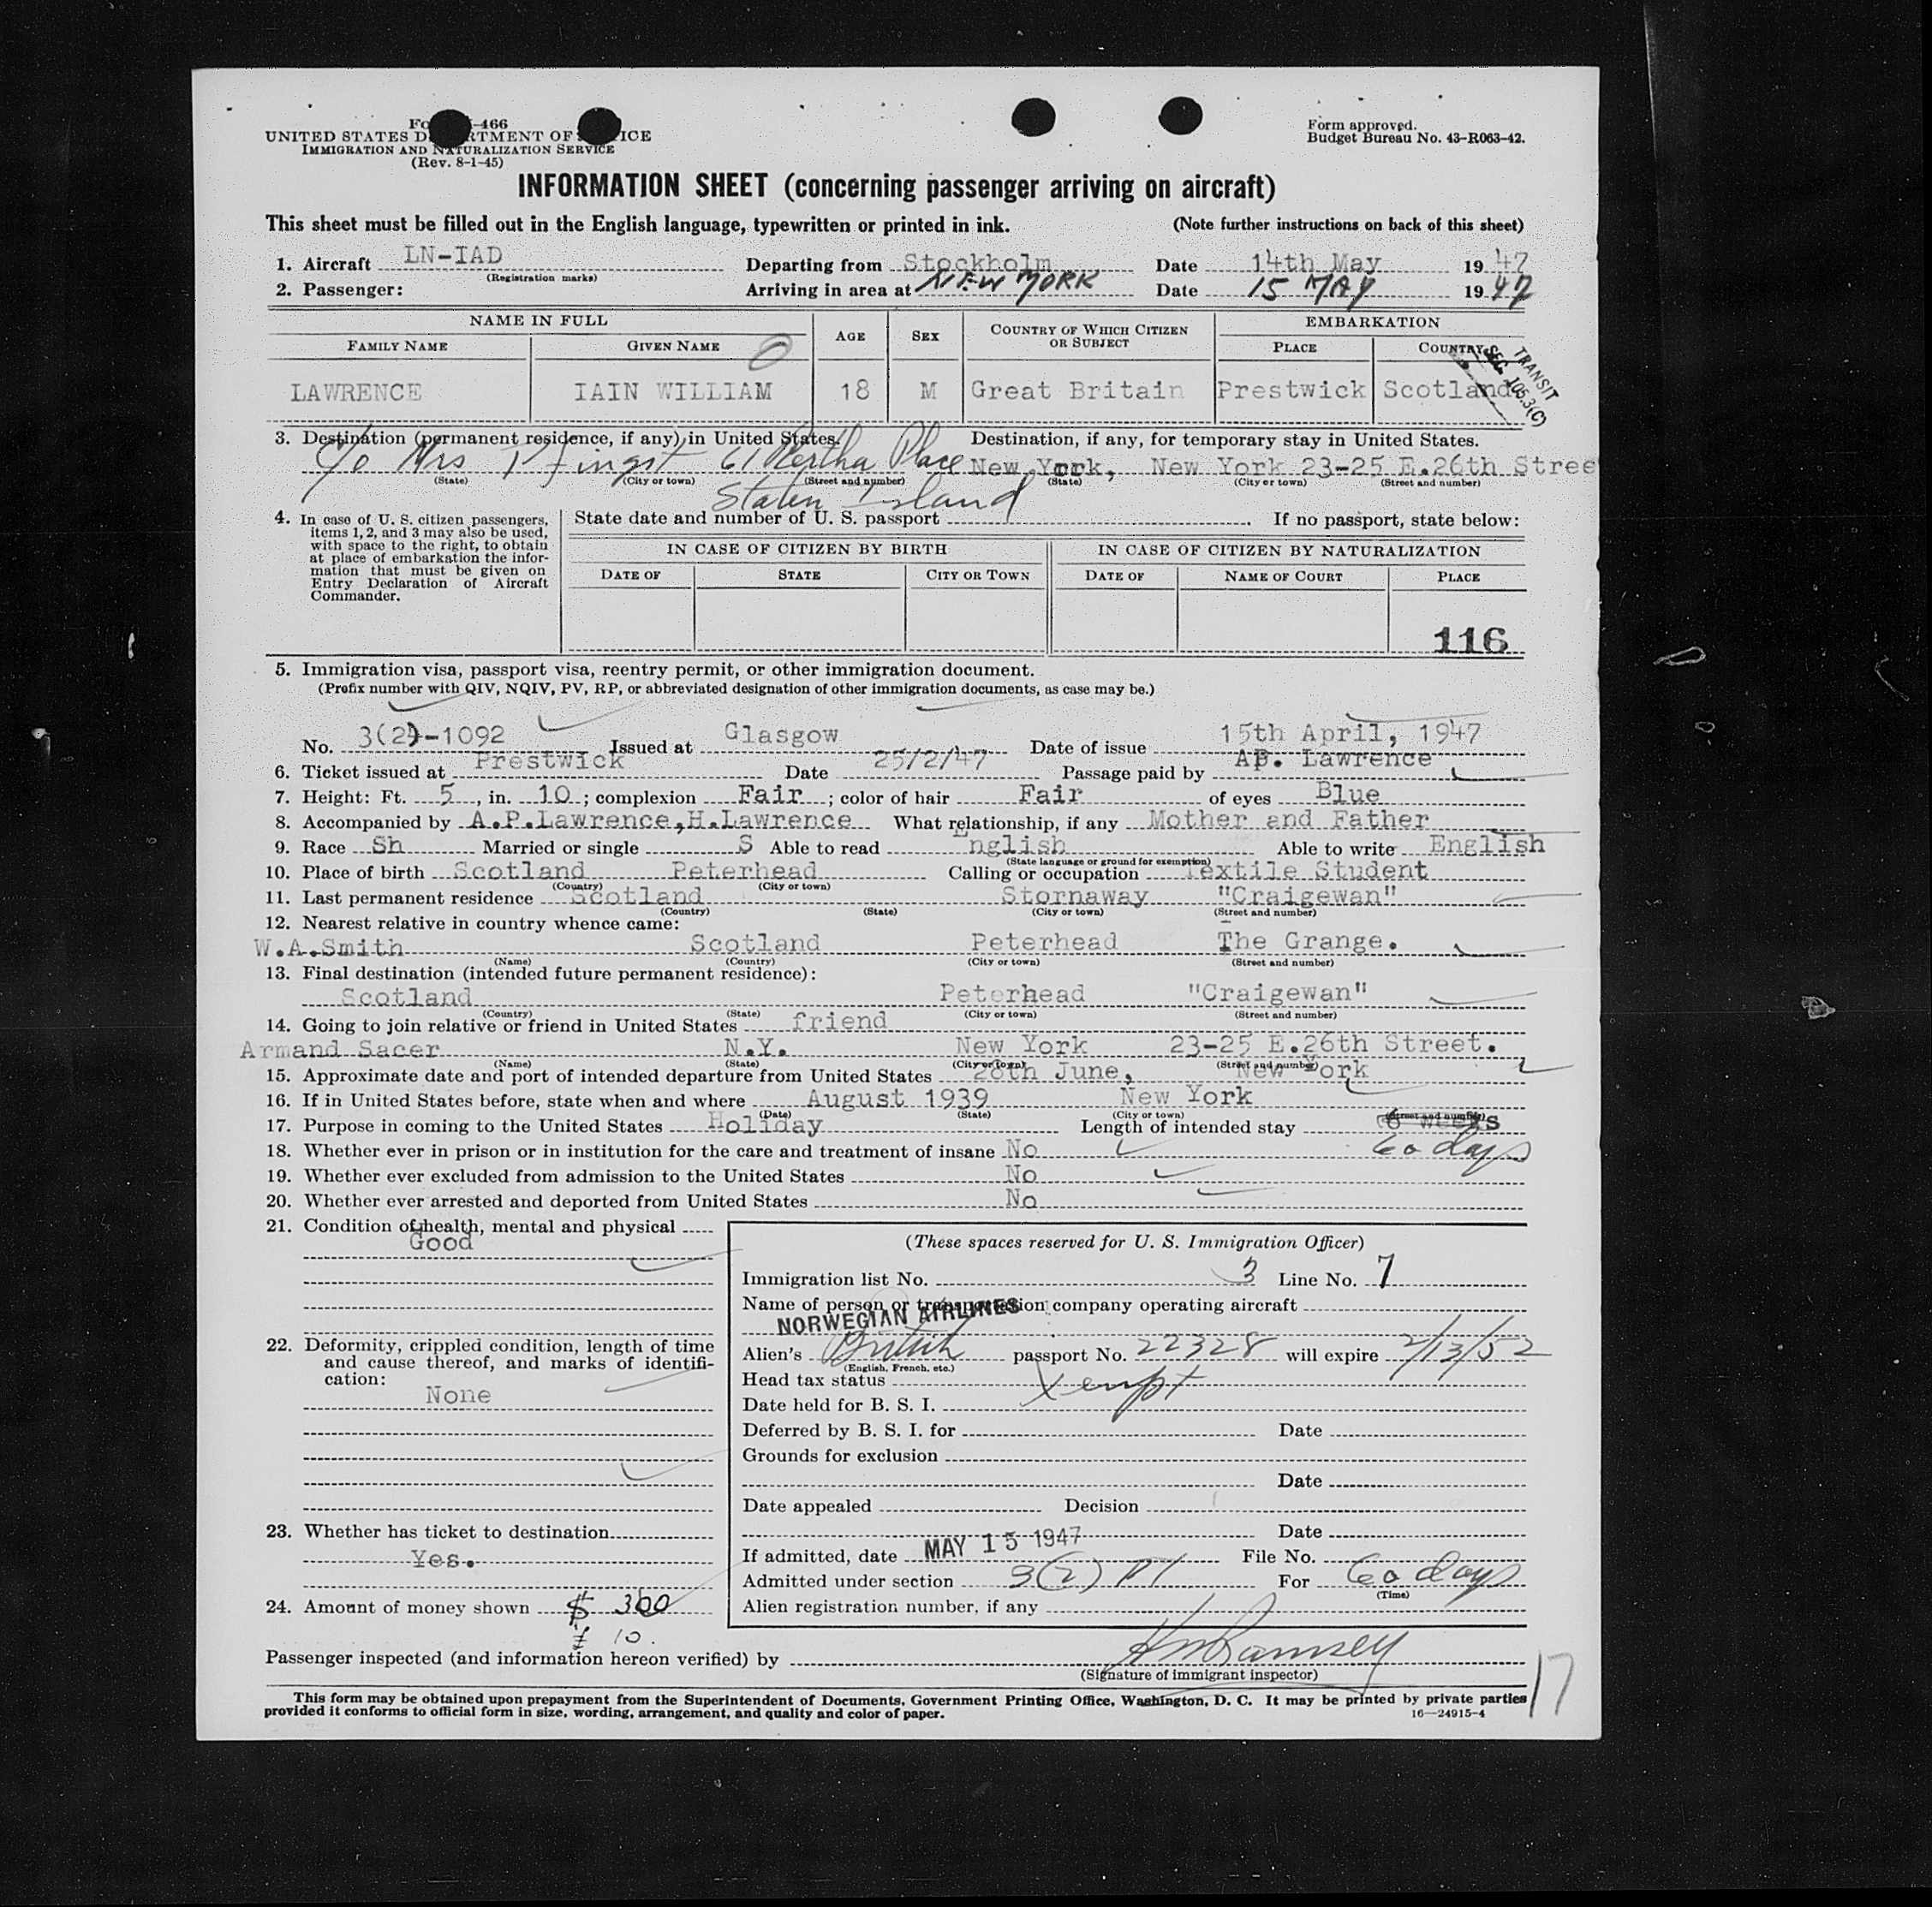 Form I-466
UNITED STATES DEPARTMENT OF JUSTICE
IMMIGRATION AND NATURALIZATION SERVICE
(Rev. 8-1-45)
Form approved.
Budget Bureau No. 43-R063-42.
INFORMATION SHEET (concerning passenger arriving on aircraft)
This sheet must be filled out in the English language, typewritten or printed in ink. (Note further instructions on back of this sheet)
1. Aircraft LN-IAD Departing from Stockholm Date 14th May 1947
(Registration marks)
2. Passenger: Arriving in area at NEW YORK Date 15 MAY 1947
NAME IN FULL AGE SEX COUNTRY OF WHICH CITIZEN OR SUBJECT EMBARKATION
FAMILY NAME GIVEN NAME PLACE COUNTRY
LAWRENCE IAIN WILLIAM 18 M Great Britain Prestwick Scotland
TRANSIT
SEC. 105.3(C)
3. Destination (permanent residence, if any) in United States. Destination, if any, for temporary stay in United States.
c/o Mrs Pfingst 61 Hertha Place New York, New York 23-25 E.26th Stree
(State) (City or town) (Street and number) (State) (City or town) (Street and number)
Staten Island
4. In case of U. S. citizen passengers, items 1, 2, and 3 may also be used, with space to the right, to obtain at place of embarkation the information that must be given on Entry Declaration of Aircraft Commander.
State date and number of U. S. passport If no passport, state below:
IN CASE OF CITIZEN BY BIRTH IN CASE OF CITIZEN BY NATURALIZATION
DATE OF STATE CITY OR TOWN DATE OF NAME OF COURT PLACE
116
5. Immigration visa, passport visa, reentry permit, or other immigration document.
(Prefix number with QIV, NQIV, PV, RP, or abbreviated designation of other immigration documents, as case may be.)
No. 3(2)-1092 Issued at Glasgow Date of issue 15th April, 1947
6. Ticket issued at Prestwick Date 25/2/47 Passage paid by AP. Lawrence
7. Height: Ft. 5, in. 10; complexion Fair; color of hair Fair of eyes Blue
8. Accompanied by A.P.Lawrence,H.Lawrence What relationship, if any Mother and Father
9. Race Sh Married or single S Able to read English Able to write English
(State language or ground for exemption)
10. Place of birth Scotland Peterhead Calling or occupation Textile Student
(Country) (City or town)
11. Last permanent residence Scotland Stornaway "Craigewan"
(Country) (State) (City or town) (Street and number)
12. Nearest relative in country whence came:
W.A.Smith Scotland Peterhead The Grange.
(Name) (Country) (City or town) (Street and number)
13. Final destination (intended future permanent residence):
Scotland Peterhead "Craigewan"
(Country) (State) (City or town) (Street and number)
14. Going to join relative or friend in United States friend
Armand Sacer N.Y. New York 23-25 E.26th Street.
(Name) (State) (City or town) (Street and number)
15. Approximate date and port of intended departure from United States 28th June, New York
16. If in United States before, state when and where August 1939 New York
(Date) (State) (City or town) (Street and number)
17. Purpose in coming to the United States Holiday Length of intended stay 6 weeks
60 days
18. Whether ever in prison or in institution for the care and treatment of insane No
19. Whether ever excluded from admission to the United States No
20. Whether ever arrested and deported from United States No
21. Condition of health, mental and physical
Good
22. Deformity, crippled condition, length of time and cause thereof, and marks of identification:
None
23. Whether has ticket to destination
Yes.
24. Amount of money shown $ 300
£ 10.
(These spaces reserved for U. S. Immigration Officer)
Immigration list No. 3 Line No. 7
Name of person or transportation company operating aircraft
NORWEGIAN AIRLINES
Alien's British passport No. 22328 will expire 2/13/52
(English, French, etc.)
Head tax status Xempt
Date held for B. S. I.
Deferred by B. S. I. for Date
Grounds for exclusion
Date
Date appealed Decision
Date
If admitted, date MAY 15 1947 File No.
Admitted under section 3(2) For 60 days
(Time)
Alien registration number, if any
Passenger inspected (and information hereon verified) by Ramsey
(Signature of immigrant inspector)
17
This form may be obtained upon prepayment from the Superintendent of Documents, Government Printing Office, Washington, D. C. It may be printed by private parties
provided it conforms to official form in size, wording, arrangement, and quality and color of paper.
16—24915-4